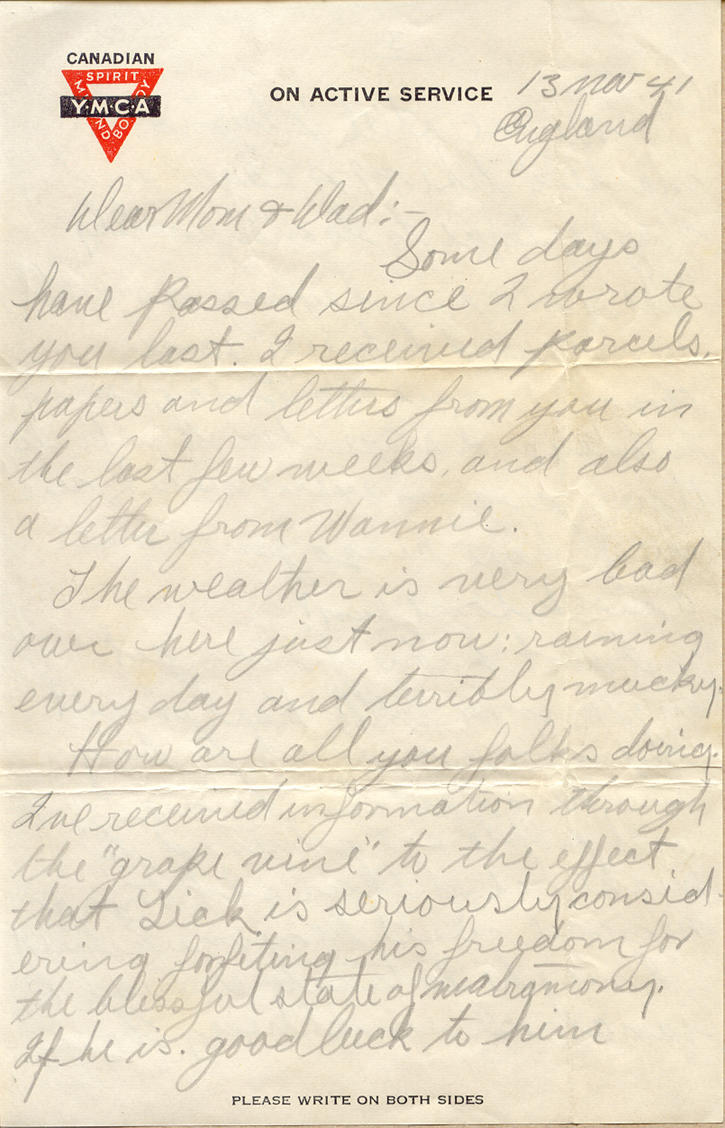 CANADIAN
SPIRIT
MIND AND BODY
Y·M·C·A
ON ACTIVE SERVICE
13 Nov 41
England
Dear Mom & Dad:-
Some days
have passed since I wrote
you last. I received parcels,
papers and letters from you in
the last few weeks, and also
a letter from Wannie.
The weather is very bad
over here just now: raining
every day and terribly mucky.
How are all you folks doing.
I've received information through
the "grape vine" to the effect
that Dick is seriously consid-
ering forfeiting his freedom for
the blissful state of matrimony.
If he is. good luck to him
PLEASE WRITE ON BOTH SIDES